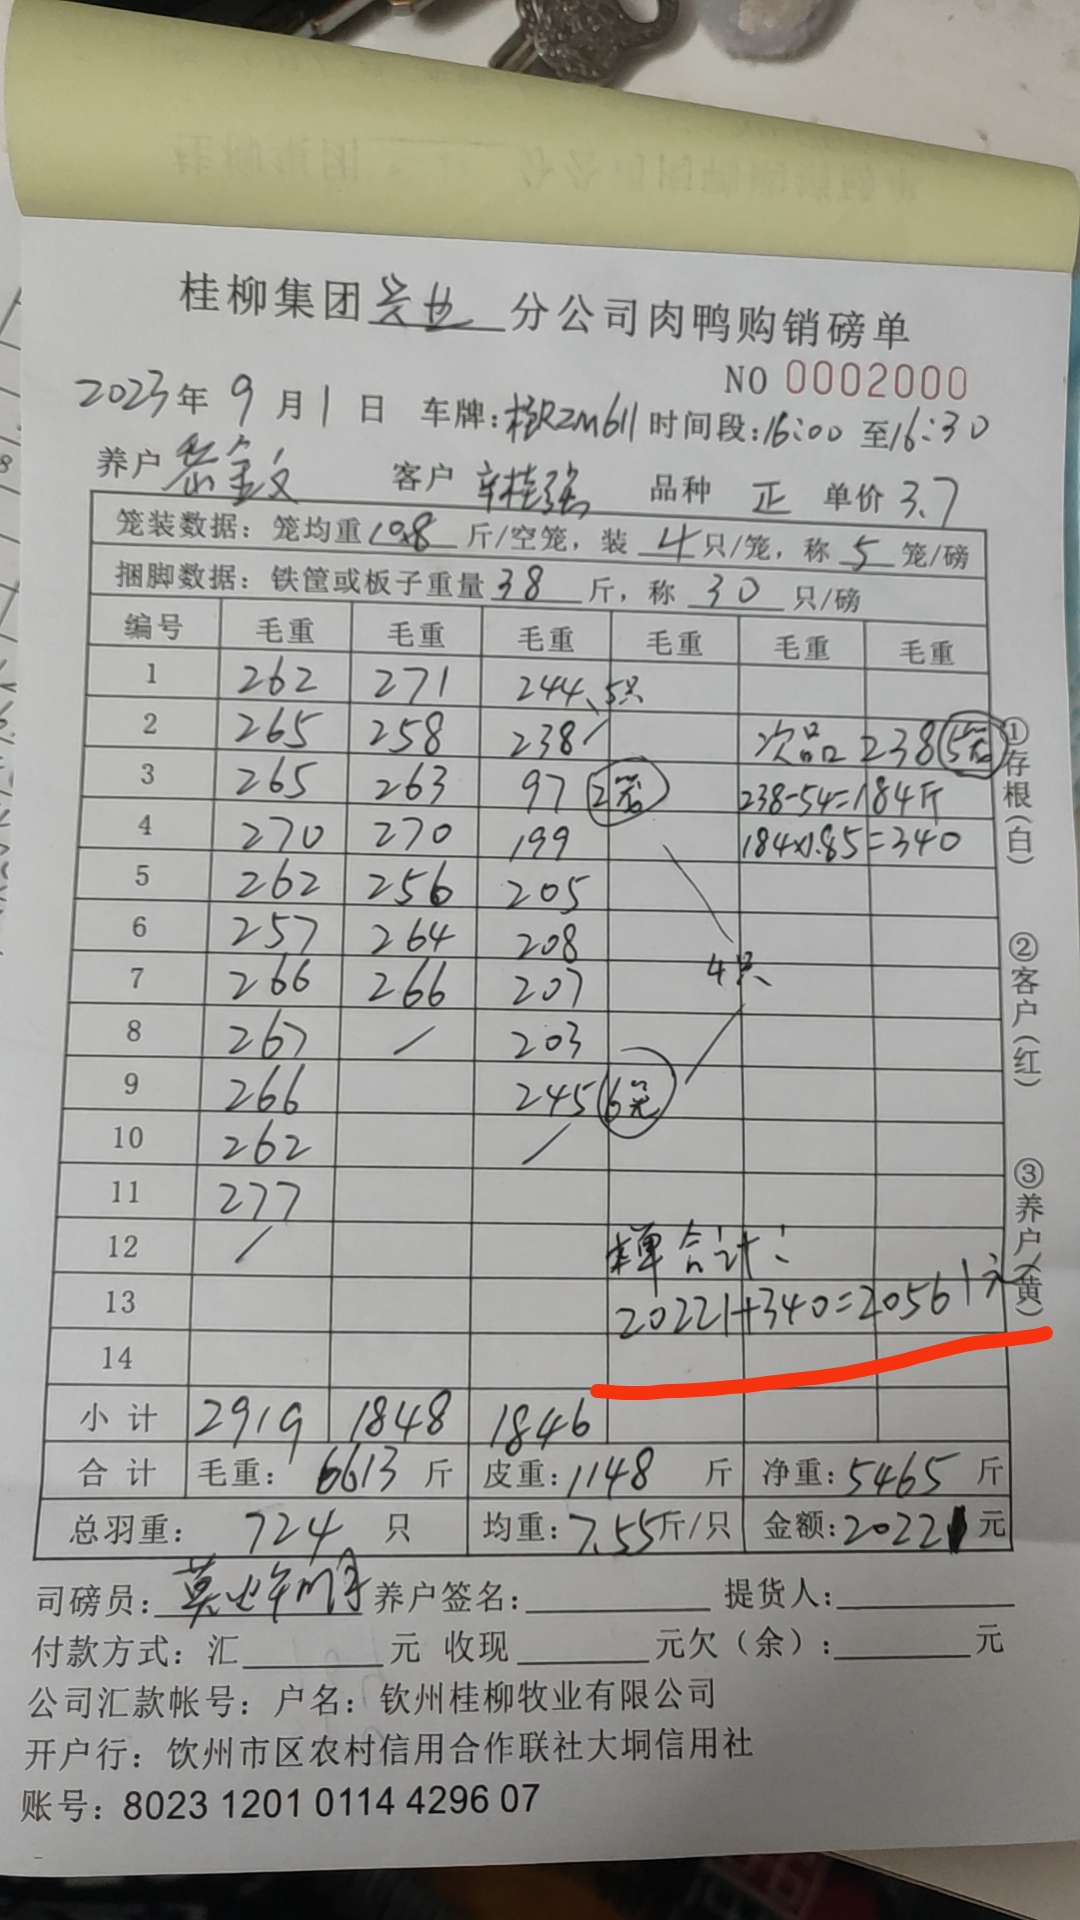 桂柳集团兴业分公司肉鸭购销磅单
NO 0002000
2023年9月1日 车牌:桂RZM611 时间段:16:00至16:30
养户 客户 品种 正 单价 3.7
笼装数据:笼均重10.8斤/空笼,装4只/笼,称5笼/磅
捆脚数据:铁筐或板子重量38斤,称30只/磅
编号 毛重 毛重 毛重 毛重 毛重 毛重
1 262 271 244、5只
2 265 258 238/ 次品 238 5笼
3 265 263 97 2笼 238-54=184斤
4 270 270 199 184×1.85=340
5 262 256 205
6 257 264 208
7 266 266 207 4只
8 267 / 203
9 266 245 6笼
10 262 /
11 277
12 / 本单合计:
13 20221+340=20561元
14
小计 2919 1848 1846
合计 毛重:6613斤 皮重:1148斤 净重:5465斤
总羽重:724只 均重:7.55斤/只 金额:20221元
司磅员: 养户签名: 提货人:
付款方式:汇 元 收现 元欠(余): 元
公司汇款帐号:户名:钦州桂柳牧业有限公司
开户行:饮州市区农村信用合作联社大垌信用社
账号:8023 1201 0114 4296 07
①存根(白)
②客户(红)
③养户(黄)